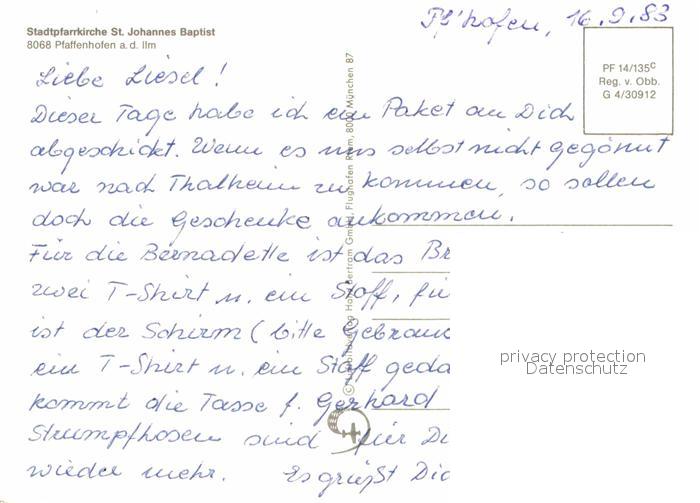 Stadtpfarrkirche St. Johannes Baptist
8068 Pfaffenhofen a. d. Ilm
Pf'hofen, 16.9.83
PF 14/135c
Reg. v. Obb.
G 4/30912
Liebe Liesel!
Dieser Tage habe ich ein Paket an Dich
abgeschickt. Wenn es uns selbst nicht gegönnt
war nach Thalheim zu kommen, so sollen
doch die Geschenke ankommen.
Für die Bernadette ist das Br
zwei T-Shirt u. ein Stoff, für
ist der Schirm (bitte Gebrauc
ein T-Shirt u. ein Stoff geda
kommt die Tasse f. Gerhard
Strumpfhosen sind für Di
wieder mehr. Es grüßt Dic
Bertram GmbH, Flughafen Riem, 8000 München 87
privacy protection
Datenschutz